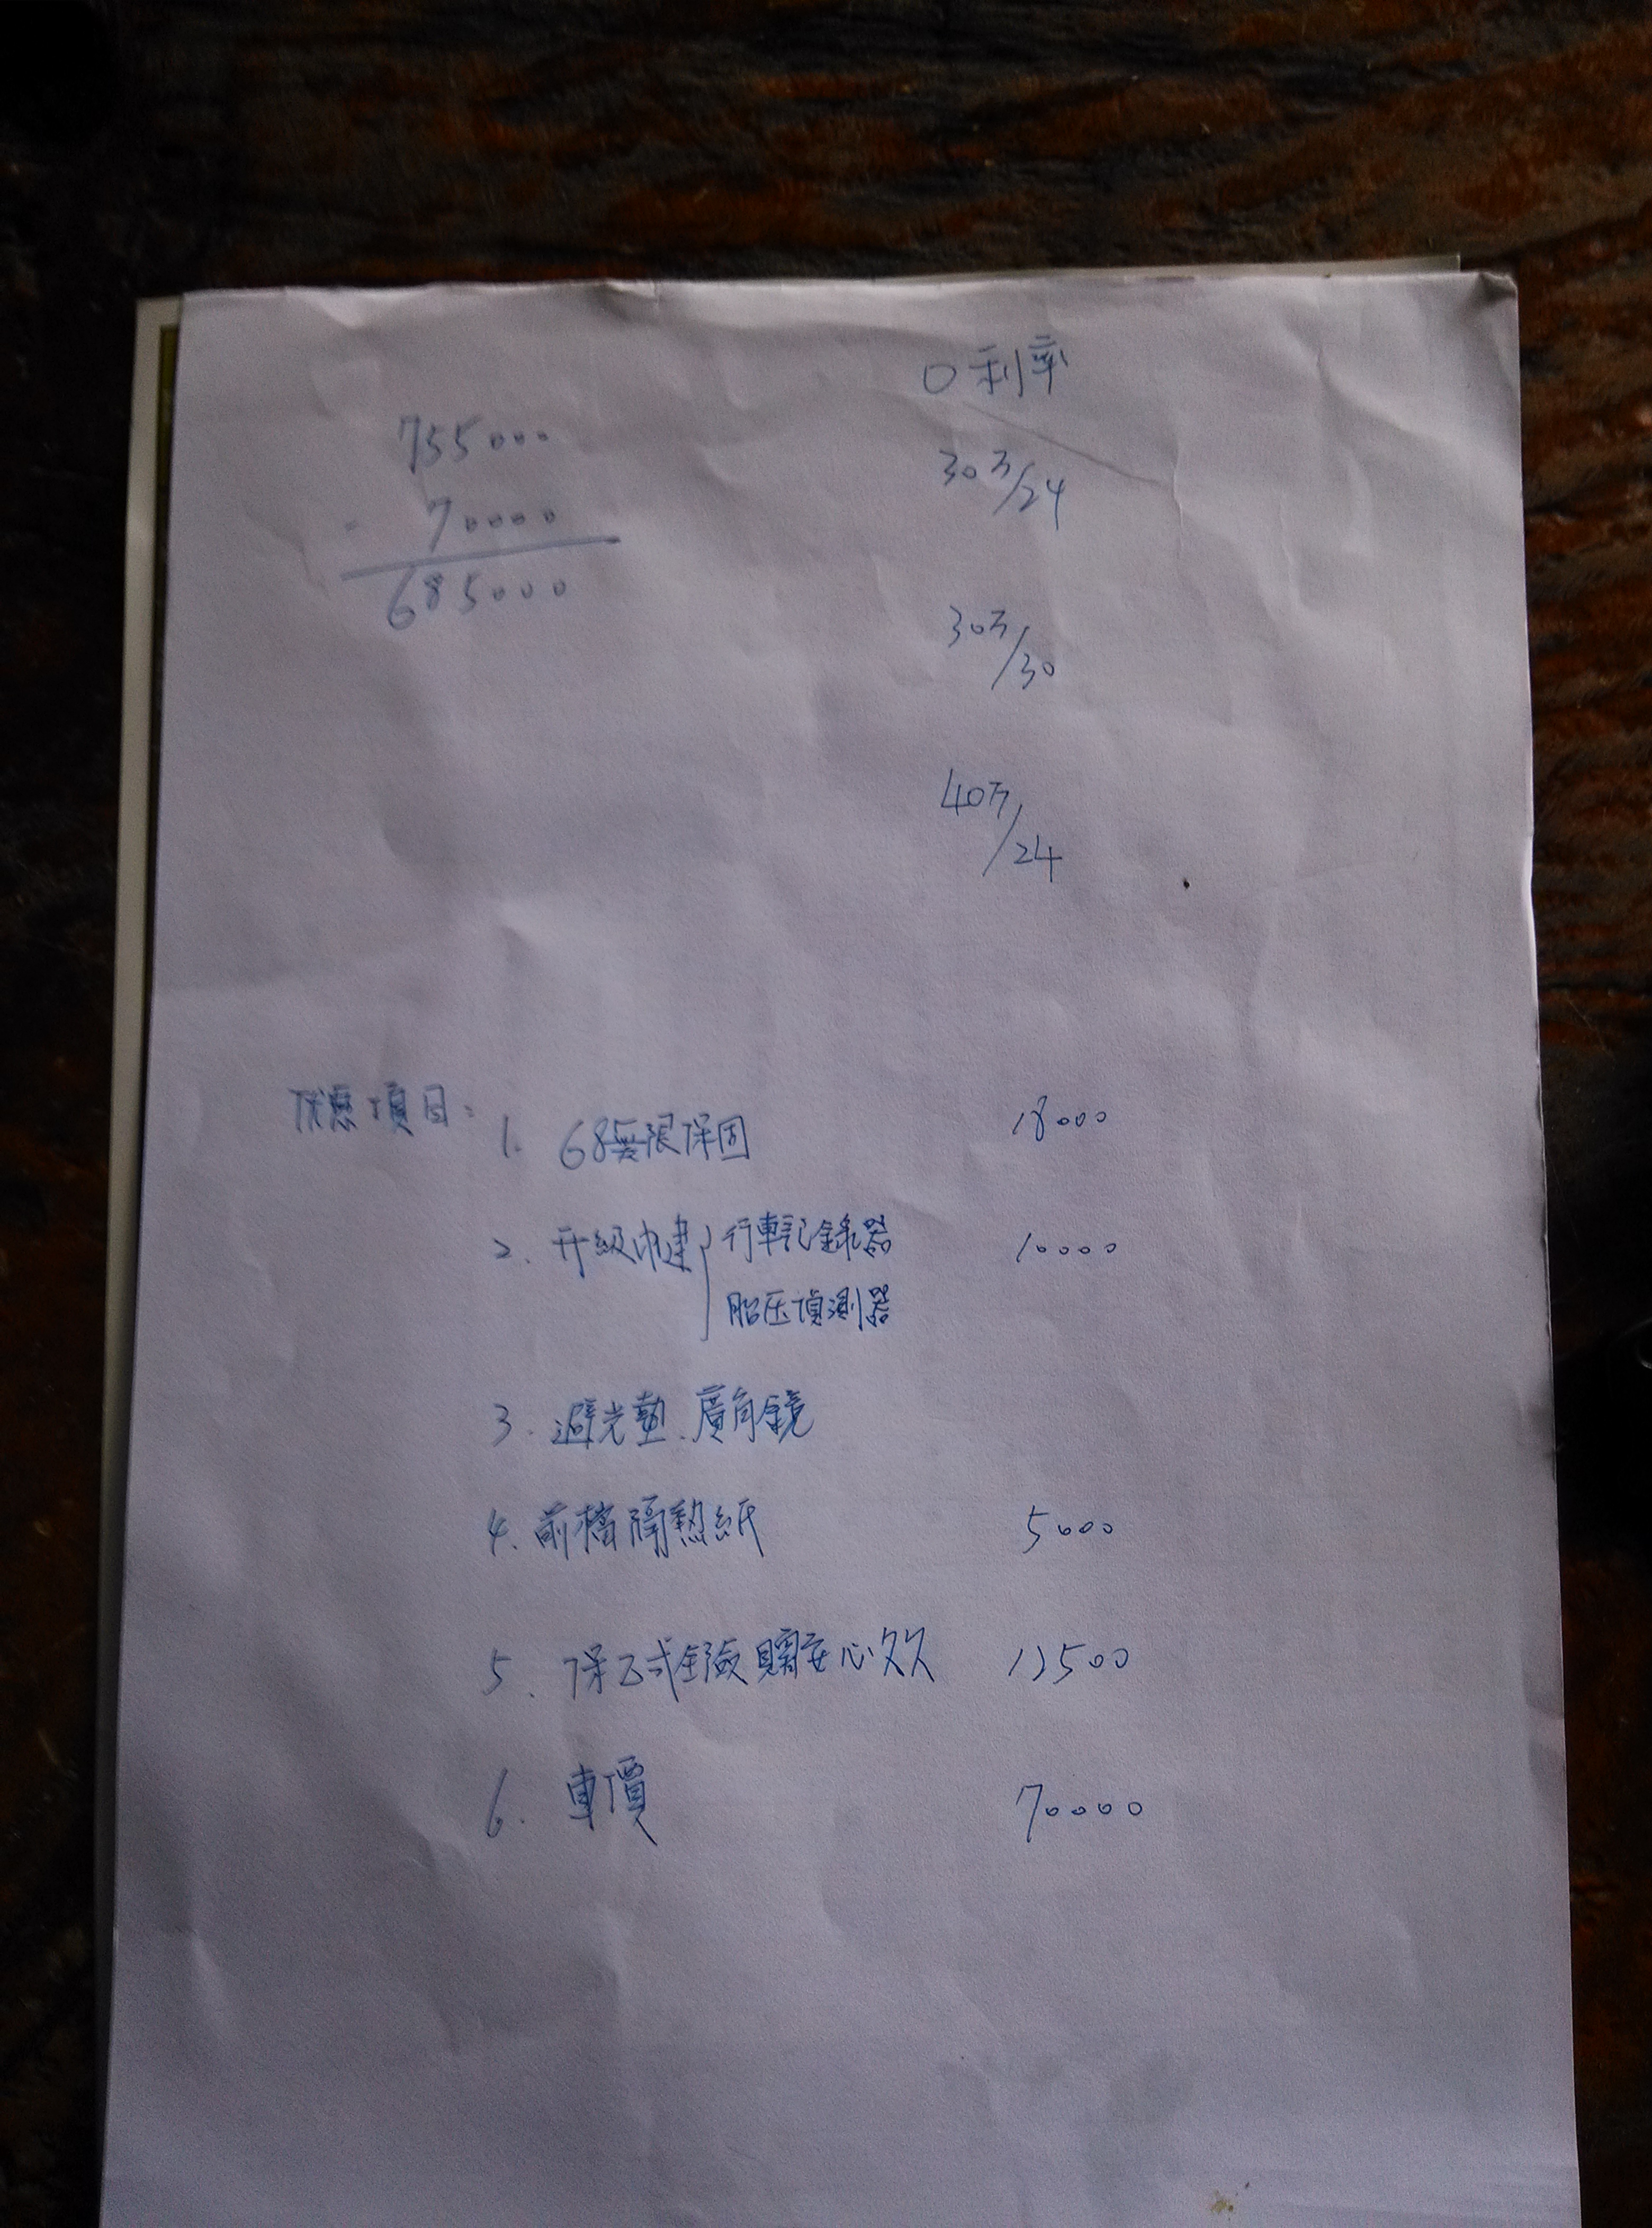 0利率
755000
- 70000
685000
30万/24
30万/30
40万/24
优惠項目:
1. 68無限保固 18000
2. 升級中建 行車記錄器 10000
胎压偵測器
3. 避光墊、廣角鏡
4. 前檔隔熱紙 5000
5. 保乙式全險 安心 12500
6. 車價 70000